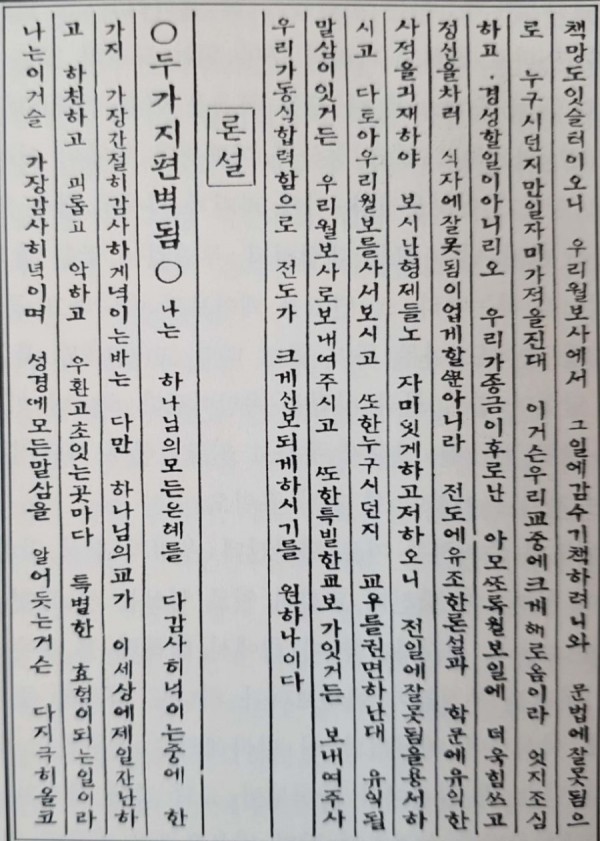 책망도잇슬터이오니 우리월보사에서 그일에감수기책하려니와 문법에잘못됨으
로 누구시던지만일자미가적을진대 이거슨우리교중에크게해로옴이라 엇지조심
하고 경성할일이아니리오 우리가종금이후로난 아모ᄯᅩ록월보일에 더욱힘쓰고
정신을차려 식자에잘못됨이업게할ᄲᅮᆫ아니라 전도에유조한론설과 학문에유익한
사적을긔재하야 보시난형제들노 자미잇게하고저하오니 전일에잘못됨을용서하
시고 다토아우리월보를사서보시고 ᄯᅩ한누구시던지 교우를권면하난대 유익될
말삼이잇거든 우리월보사로보내여주시고 ᄯᅩ한특별한교보가잇거든 보내여주사
우리가동심합력함으로 전도가 크게신보되게하시기를 원하나이다
론설
○두가지편벽됨○ 나는 하나님의모든은혜를 다감사히녁이는중에 한
가지 가장간절히감사하게녁이는바는 다만 하나님의교가 이세상에제일잔난하
고 하천하고 괴롭고 악하고 우환고초잇는곳마다 특별한 효험이되는일이라
나는이거슬 가장감사히녁이며 성경에모든말삼을 알어듯는거슨 다지극히올코